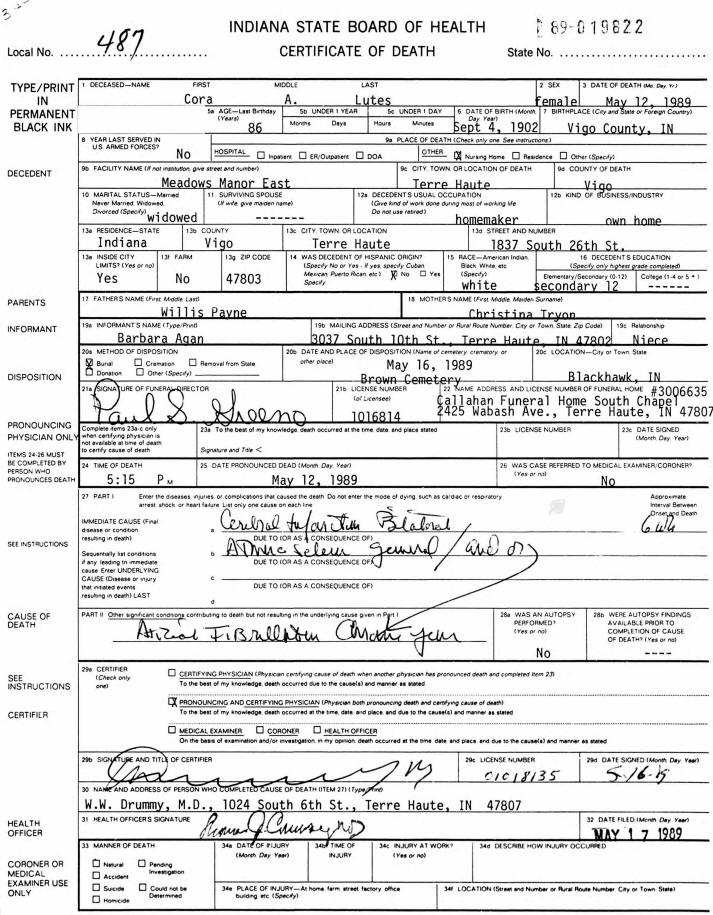 INDIANA STATE BOARD OF HEALTH
89-019822
Local No. 487
CERTIFICATE OF DEATH
State No.
TYPE/PRINT IN PERMANENT BLACK INK
1 DECEASED—NAME FIRST MIDDLE LAST
Cora A. Lutes
2 SEX
female
3 DATE OF DEATH (Mo. Day. Yr.)
May 12, 1989
5a AGE—Last Birthday (Years)
86
5b UNDER 1 YEAR
Months Days
5c UNDER 1 DAY
Hours Minutes
6 DATE OF BIRTH (Month, Day. Year)
Sept 4, 1902
7 BIRTHPLACE (City and State or Foreign Country)
Vigo County, IN
8 YEAR LAST SERVED IN U.S. ARMED FORCES?
No
9a PLACE OF DEATH (Check only one. See instructions)
HOSPITAL Inpatient ER/Outpatient DOA
OTHER X Nursing Home Residence Other (Specify)
DECEDENT
9b FACILITY NAME (If not institution, give street and number)
Meadows Manor East
9c CITY, TOWN OR LOCATION OF DEATH
Terre Haute
9d COUNTY OF DEATH
Vigo
10 MARITAL STATUS—Married Never Married, Widowed, Divorced (Specify)
widowed
11 SURVIVING SPOUSE (If wife, give maiden name)
-------
12a DECEDENT'S USUAL OCCUPATION (Give kind of work done during most of working life. Do not use retired)
homemaker
12b KIND OF BUSINESS/INDUSTRY
own home
13a RESIDENCE—STATE
Indiana
13b COUNTY
Vigo
13c CITY, TOWN OR LOCATION
Terre Haute
13d STREET AND NUMBER
1837 South 26th St.
13e INSIDE CITY LIMITS? (Yes or no)
Yes
13f FARM
No
13g ZIP CODE
47803
14 WAS DECEDENT OF HISPANIC ORIGIN? (Specify No or Yes - If yes, specify Cuban, Mexican, Puerto Rican, etc.) X No Yes
Specify
15 RACE—American Indian, Black, White, etc. (Specify)
white
16 DECEDENT'S EDUCATION (Specify only highest grade completed)
Elementary/Secondary (0-12) College (1-4 or 5+)
secondary 12 ------
PARENTS
17 FATHER'S NAME (First, Middle, Last)
Willis Payne
18 MOTHER'S NAME (First, Middle, Maiden Surname)
Christina Tryon
INFORMANT
19a INFORMANT'S NAME (Type/Print)
Barbara Agan
19b MAILING ADDRESS (Street and Number or Rural Route Number, City or Town, State, Zip Code)
3037 South 10th St., Terre Haute, IN 47802
19c Relationship
Niece
DISPOSITION
20a METHOD OF DISPOSITION
X Burial Cremation Removal from State
Donation Other (Specify)
20b DATE AND PLACE OF DISPOSITION (Name of cemetery, crematory, or other place)
May 16, 1989
Brown Cemetery
20c LOCATION—City or Town, State
Blackhawk, IN
21a SIGNATURE OF FUNERAL DIRECTOR
Paul S Greeno
21b LICENSE NUMBER (of Licensee)
1016814
22 NAME, ADDRESS, AND LICENSE NUMBER OF FUNERAL HOME #3006635
Callahan Funeral Home South Chapel
2425 Wabash Ave., Terre Haute, IN 47807
PRONOUNCING PHYSICIAN ONLY
Complete items 23a-c only when certifying physician is not available at time of death to certify cause of death
23a To the best of my knowledge, death occurred at the time, date, and place stated
Signature and Title <
23b LICENSE NUMBER
23c DATE SIGNED (Month, Day, Year)
ITEMS 24-26 MUST BE COMPLETED BY PERSON WHO PRONOUNCES DEATH
24 TIME OF DEATH
5:15 P M
25 DATE PRONOUNCED DEAD (Month, Day, Year)
May 12, 1989
26 WAS CASE REFERRED TO MEDICAL EXAMINER/CORONER? (Yes or no)
No
27 PART I Enter the diseases, injuries, or complications that caused the death. Do not enter the mode of dying, such as cardiac or respiratory arrest, shock, or heart failure. List only one cause on each line
Approximate Interval Between Onset and Death
SEE INSTRUCTIONS
IMMEDIATE CAUSE (Final disease or condition resulting in death)
a Cerebral Infarction Bilateral
DUE TO (OR AS A CONSEQUENCE OF)
Sequentially list conditions if any, leading to immediate cause. Enter UNDERLYING CAUSE (Disease or injury that initiated events resulting in death) LAST
b general
DUE TO (OR AS A CONSEQUENCE OF)
c
DUE TO (OR AS A CONSEQUENCE OF)
d
CAUSE OF DEATH
PART II Other significant conditions contributing to death but not resulting in the underlying cause given in Part I
Atrial Fibrillation
28a WAS AN AUTOPSY PERFORMED? (Yes or no)
No
28b WERE AUTOPSY FINDINGS AVAILABLE PRIOR TO COMPLETION OF CAUSE OF DEATH? (Yes or no)
----
SEE INSTRUCTIONS
CERTIFIER
29a CERTIFIER (Check only one)
CERTIFYING PHYSICIAN (Physician certifying cause of death when another physician has pronounced death and completed Item 23)
To the best of my knowledge, death occurred due to the cause(s) and manner as stated
X PRONOUNCING AND CERTIFYING PHYSICIAN (Physician both pronouncing death and certifying cause of death)
To the best of my knowledge, death occurred at the time, date, and place, and due to the cause(s) and manner as stated
MEDICAL EXAMINER CORONER HEALTH OFFICER
On the basis of examination and/or investigation, in my opinion, death occurred at the time, date, and place, and due to the cause(s) and manner as stated
29b SIGNATURE AND TITLE OF CERTIFIER
29c LICENSE NUMBER
01018135
29d DATE SIGNED (Month, Day, Year)
30 NAME AND ADDRESS OF PERSON WHO COMPLETED CAUSE OF DEATH (ITEM 27) (Type/Print)
W.W. Drummy, M.D., 1024 South 6th St., Terre Haute, IN 47807
HEALTH OFFICER
31 HEALTH OFFICER'S SIGNATURE
32 DATE FILED (Month, Day, Year)
MAY 17 1989
CORONER OR MEDICAL EXAMINER USE ONLY
33 MANNER OF DEATH
Natural Pending Investigation
Accident
Suicide Could not be Determined
Homicide
34a DATE OF INJURY (Month, Day, Year)
34b TIME OF INJURY
34c INJURY AT WORK? (Yes or no)
34d DESCRIBE HOW INJURY OCCURRED
34e PLACE OF INJURY—At home, farm, street, factory, office building, etc. (Specify)
34f LOCATION (Street and Number or Rural Route Number, City or Town, State)